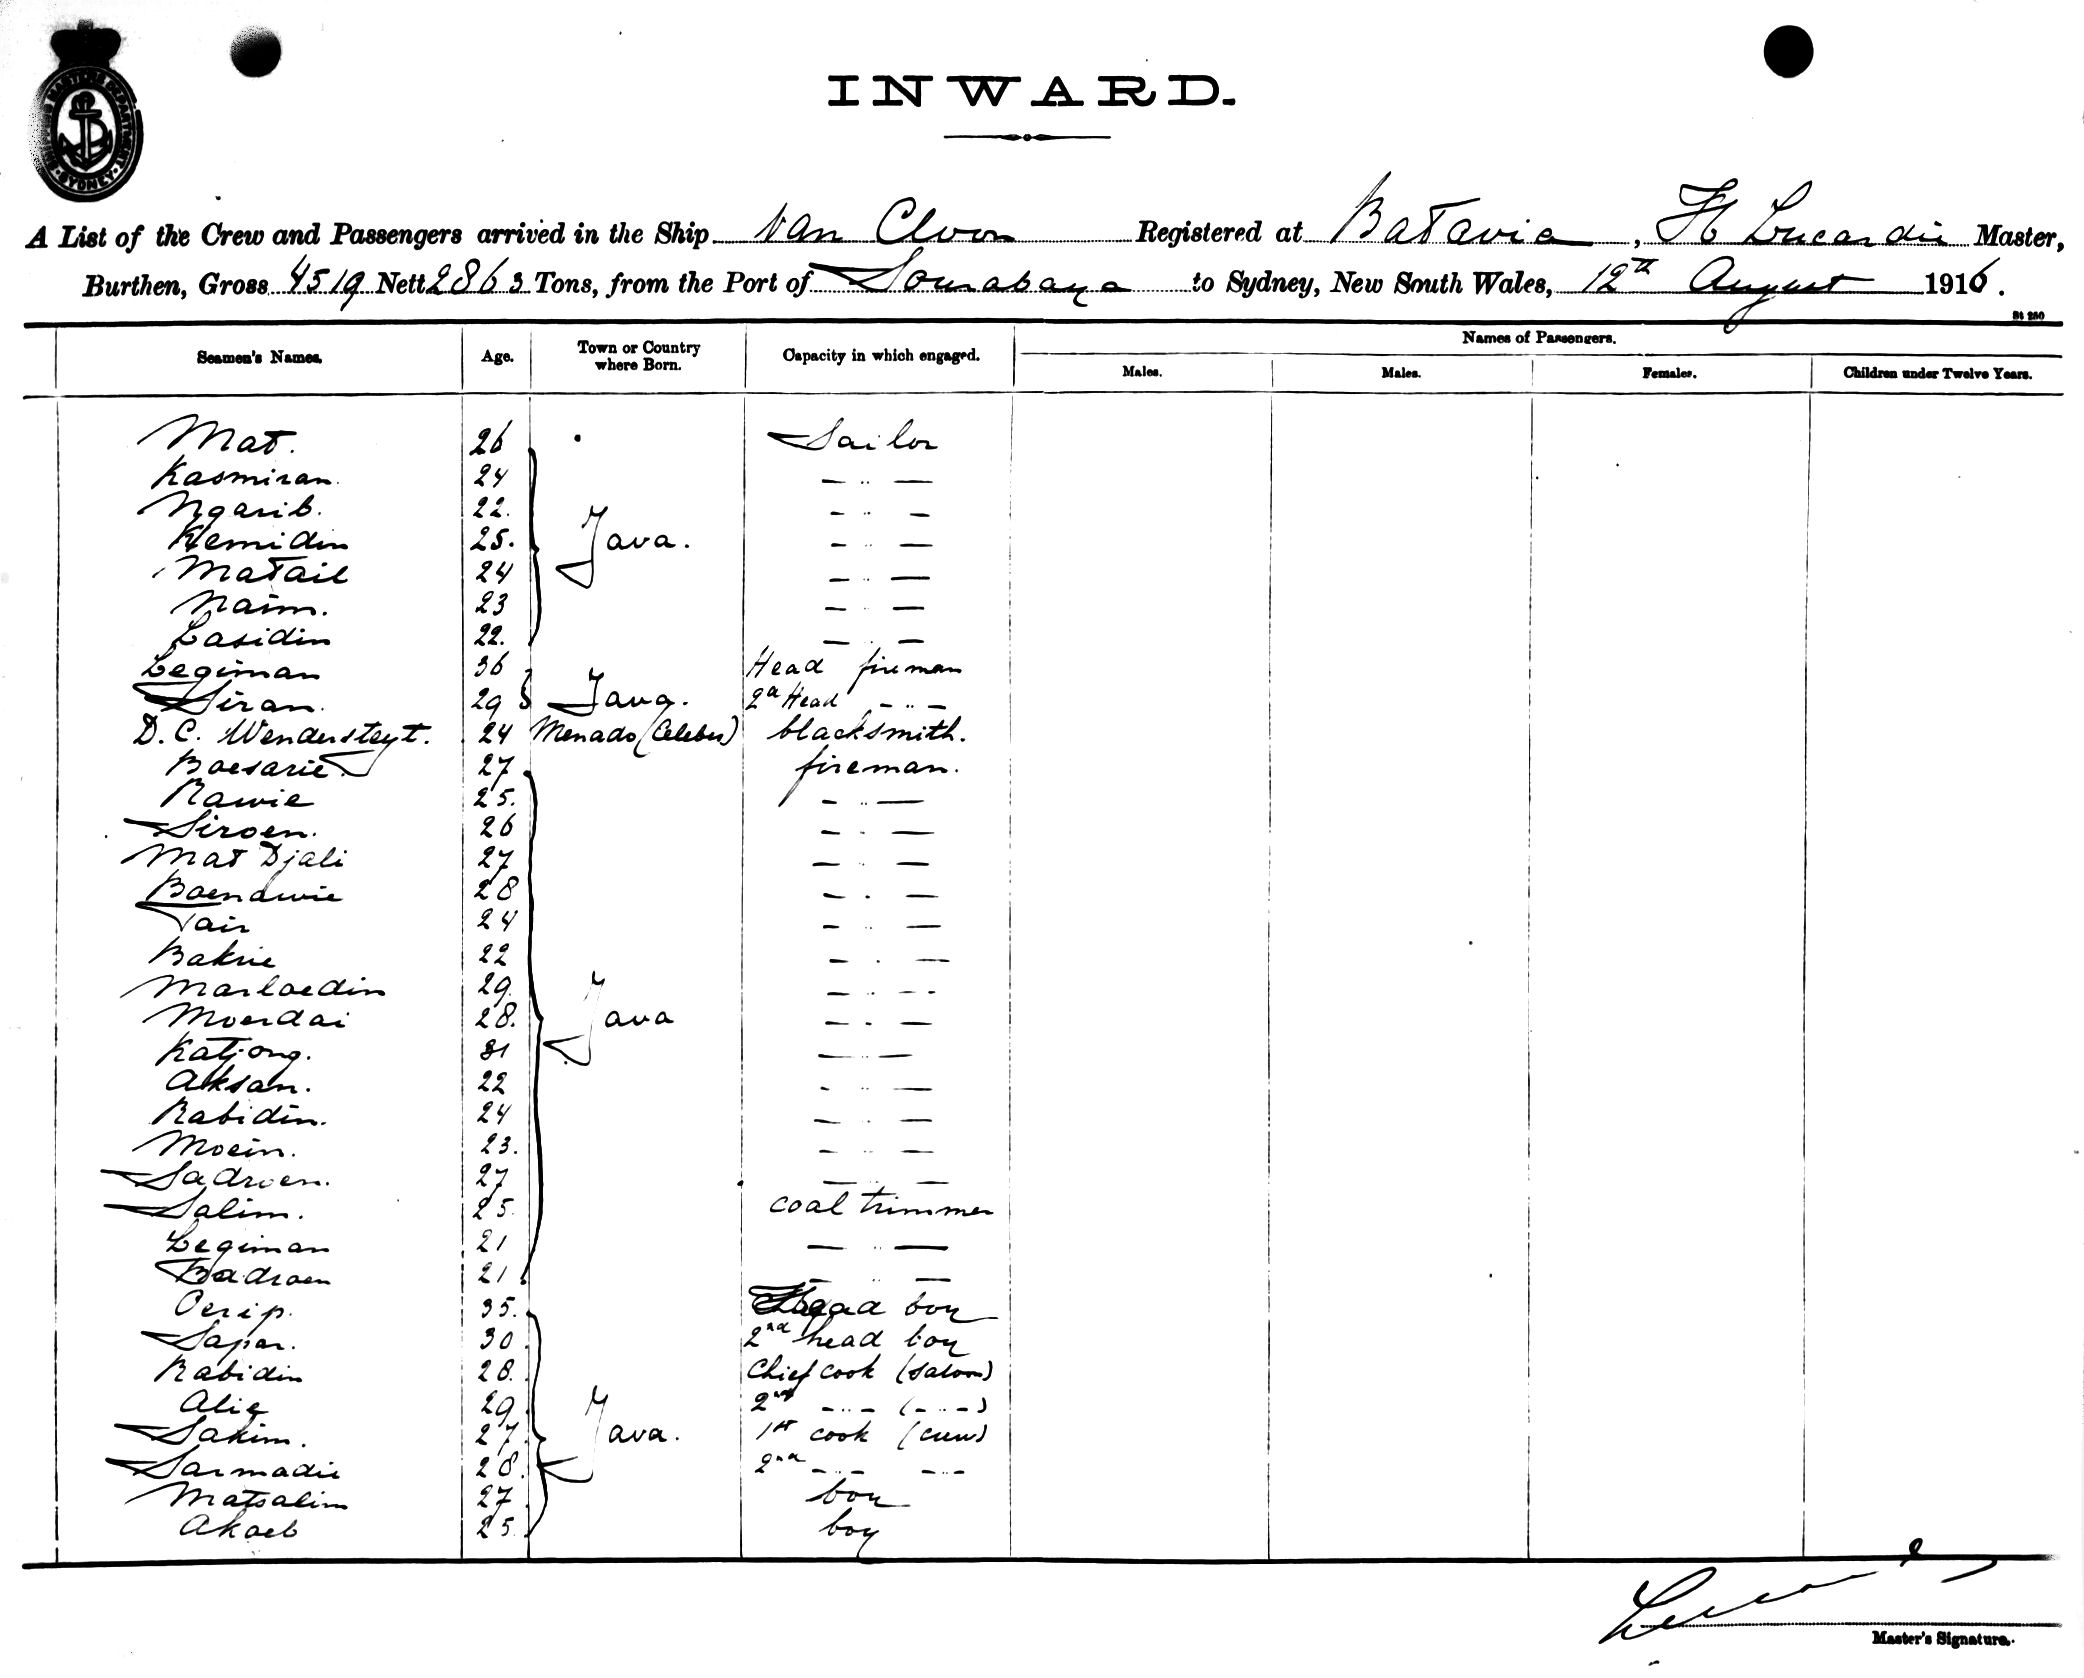 SHIPPING MASTER'S DEPARTMENT SYDNEY
INWARD.
A List of the Crew and Passengers arrived in the Ship Van Cloon Registered at Batavia, H Lucardie Master,
Burthen, Gross 4519 Nett 2863 Tons, from the Port of Sourabaya to Sydney, New South Wales, 12th August 1916.
St 250
Seamen's Names. Age. Town or Country where Born. Capacity in which engaged. Names of Passengers.
Males. Males. Females. Children under Twelve Years.
Mat. 26 Sailor
Kasmiran. 24 — „ —
Ngarib. 22. — „ —
Kemidin 25. Java. — „ —
Matail 24 — „ —
Naim. 23 — „ —
Lasidin 22. — „ —
Legiman 36 Head fireman
Siran. 29 Java. 2d Head — „ —
D. C. Wendersteyt. 24 Menado (Celebes) blacksmith.
Boesarie. 27 fireman.
Rawie 25. — „ —
Siroen. 26 — „ —
Mat Djali 27 — „ —
Boenawie 28 — „ —
Tair 24 — „ —
Bakrie 22 — „ —
Marloedin 29. — „ —
Moerdai 28. Java — „ —
Katjong. 31 — „ —
Aksan. 22 — „ —
Rabidin. 24 — „ —
Moein. 23. — „ —
Sadroen. 27 — „ —
Salim. 25. coal trimmer
Legiman 21 — „ —
Badroen 21 — „ —
Oerip. 35. Head boy
Sapar. 30. 2nd head boy
Rabidin 28. Chief cook (saloon)
Alie 29. 2nd — „ — (— „ —)
Sakim. 27. Java. 1st cook (crew)
Sarmadie 28. 2nd — „ — — „ —
Matsalim 27 boy
Akoeb 25. boy
Master's Signature.